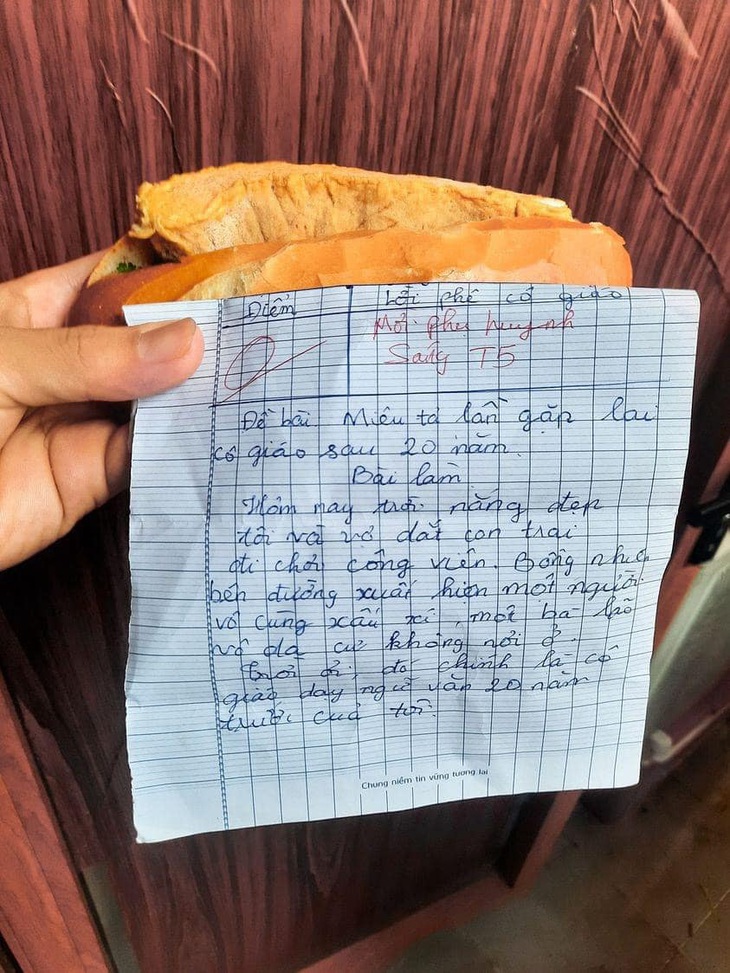 Điểm
Lời phê cô giáo
Mời phụ huynh
Sáng T5
Đề bài Miêu tả lần gặp lại
cô giáo sau 20 năm.
Bài làm
Hôm nay trời nắng đẹp
tôi và vợ dắt con trai
đi chơi công viên. Bỗng nhiên
bên đường xuất hiện một người
vô cùng xấu xí, một bà lão
vô gia cư không nơi ở.
Trời ơi, đó chính là cô
giáo dạy ngữ văn 20 năm
trước của tôi.
Chung niềm tin vững tương lai